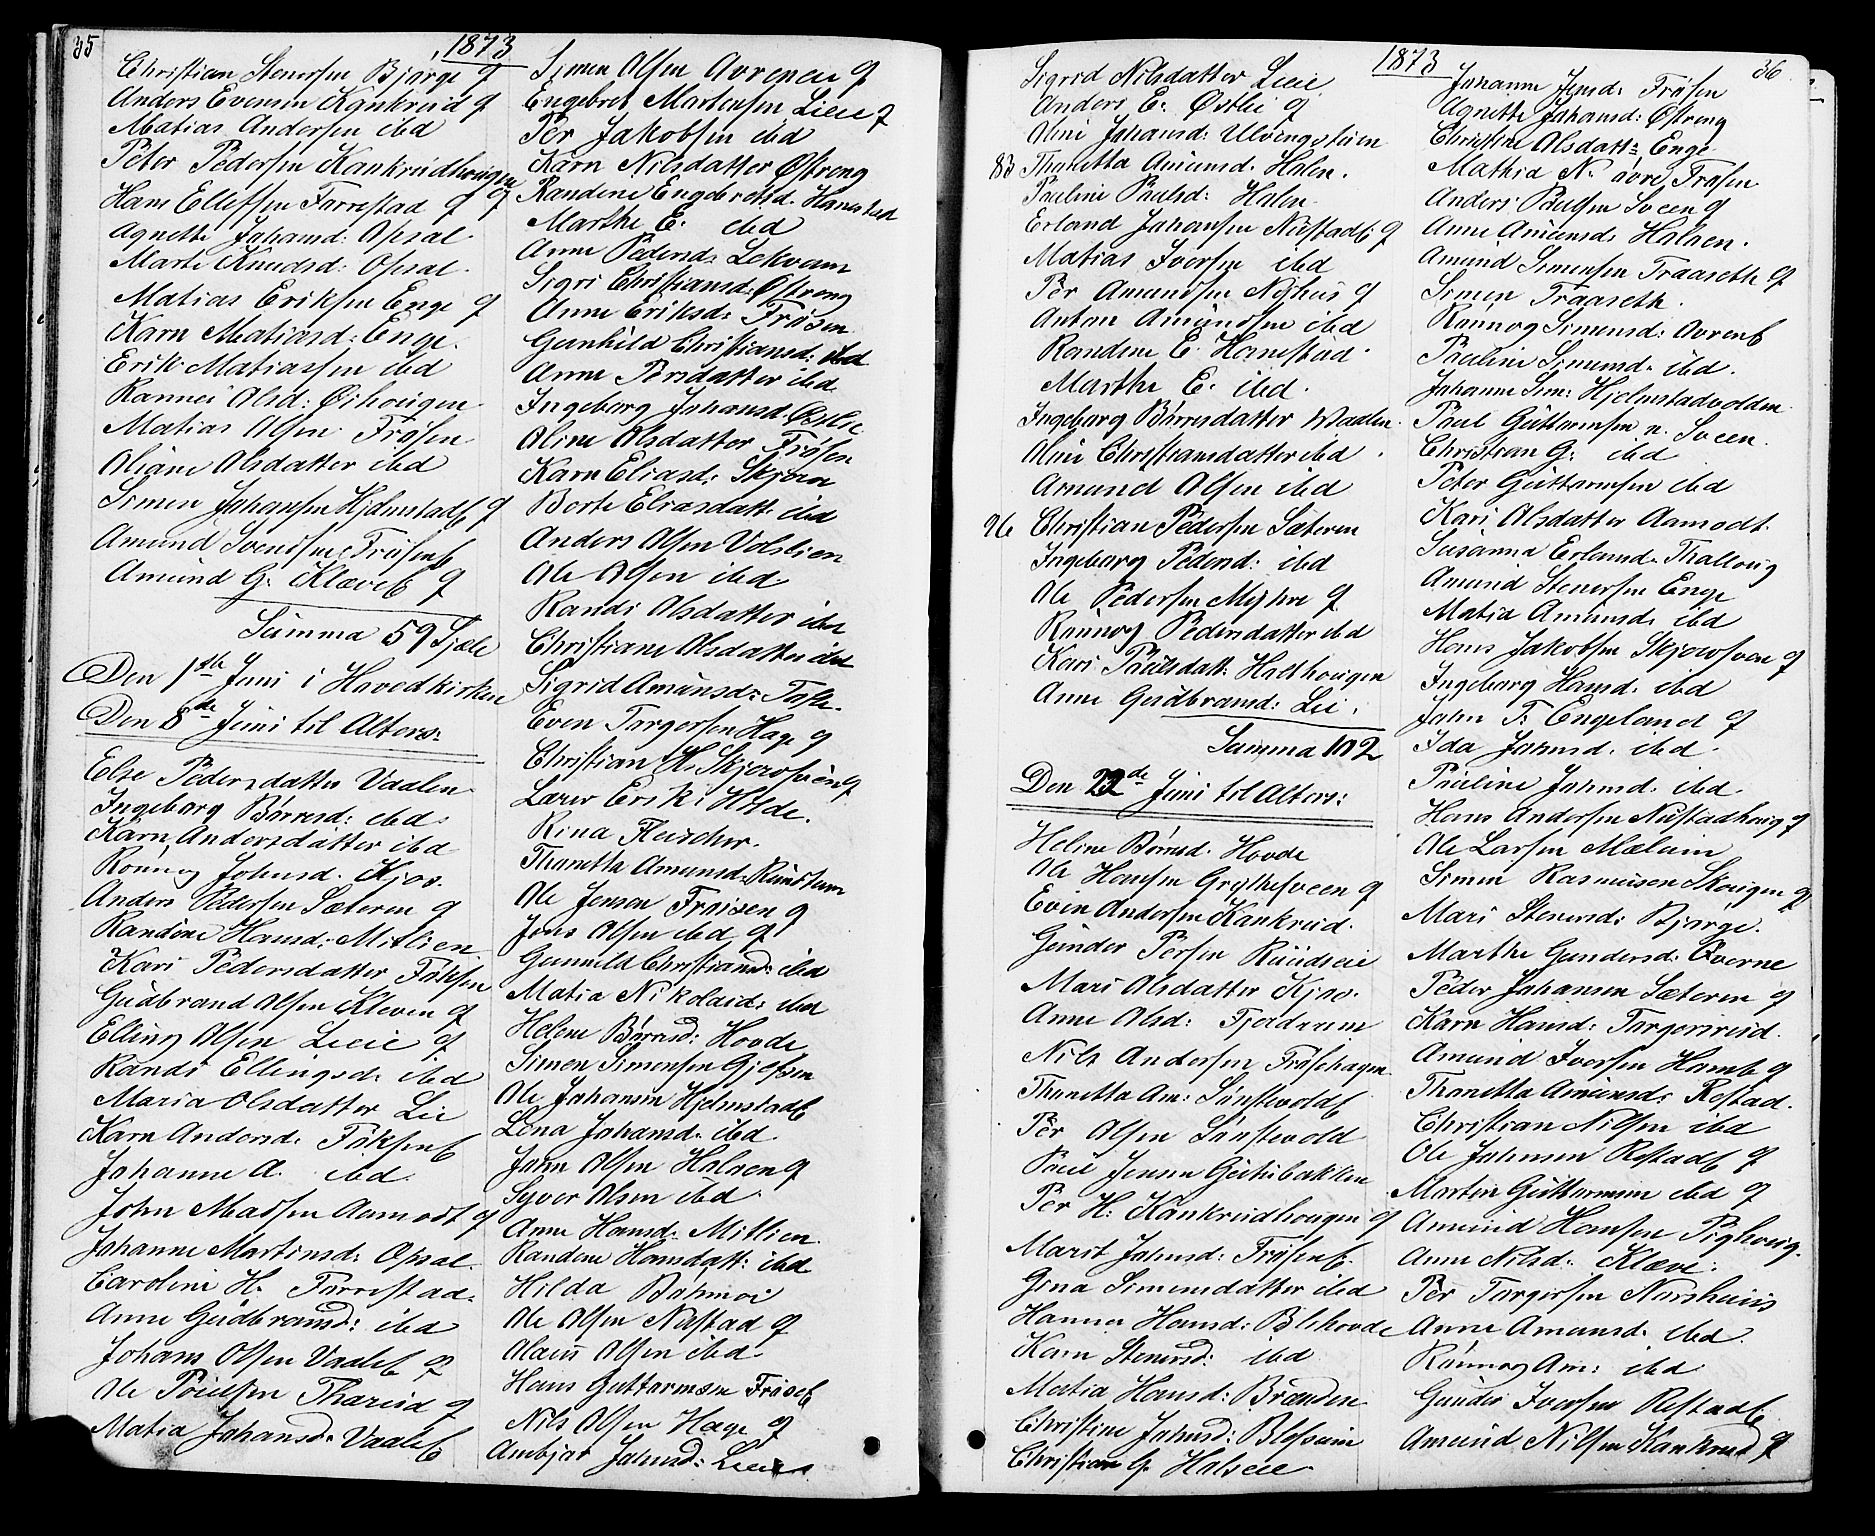 35
1873
Christian Stenersen Bjørge q
Anders Evensen Kankrud q
Matias Andersen ibd
Peter Pedersen Kankrudhougen q
Hans Ellefsen Farrestad q
Agnethe Johansd: Opsal
Marte Knudsd: Opsal.
Matias Eriksen Enge q
Karn Matiasd: Enge.
Erik Matiassen ibd
Rannei Olsd: Øihougen
Matias Olsen Frøsen
Oliane Olsdatter ibd
Simen Johansen HjelmstadE q
Amund Svendsen FrøsenE
Amund G. KlæveE q
Summa 59 Sjæle
Den 1ste Juni i Hovedkirken
Den 8de Juni til Alters:
Else Pedersdatter Vaalen
Ingeborg Børresd: ibd.
Karn Andersdatter ibd
Rønnog Johnsd. Kjos.
Anders Pedersen Sæteren q
Randine Hansd: Mitlien
Kari Pedersdatter Foksen
Gudbrand Olsen Kleven q
Elling Olsen Lieie q
Randi Ellingsd. ibd
Maria Olsdatter Lie
Karn Andersd. FoksenE
Johanne A. ibd.
John Madsen Aamodt q
Johanne Martinsd: Opsal.
Caroline H. Farrestad.
Anne Gudbransd: ibd
Johans Olsen VaaleE q
Ole Poulsen Tharud q
Matia Johansd. VaaleE
Simen Olsen Avrenen q
Engebret Martensen Lieie q
Per Jakobsen ibd
Karn Nilsdatter Østreng
Randine Engebretsd. Hanestad
Marthe E. ibd
Anne Pedersd. Lekvam
Sigri Christiansd: Østreng
Anne Eriksd: Frøsen
Gunhild Christiansd: ibd
Anne Persdatter ibd
Ingeborg Johansd. Østlie
Oline Olsdatter Frøsen
Karn Eliasd: Skjera
Berte Eliasdatt. ibd
Anders Olsen Volslien
Ole Olsen ibd
Randi Olsdatter ibd
Christiane Olsdatter ibd
Sigrid Amunsd:
Even Torgersen Hage q
Christian H. Skjerosveen q
Larw Erik: Hilde.
Rina Fleischer.
Thonetta Amunsd. Rundtum
Ole Jensen Frøisen q
Jens Olsen ibd q
Gunnild Christiansd: ibd
Matia Nikolaid: ibd
Helene Børresd: Hovde
Simen Simensen Gjefsen
Ole Johansen HjelmstadE
Lena Johansd. ibd.
John Olsen Halsen q
Syver Olsen ibd.
Anne Hansd. Mitlien.
Randine Hansdatt: ibd
Hilda
Ole Olsen Nustad q
Olaus Olsen ibd.
Hans Guttormsen FrøseE
Nils Olsen Hage q
Ambjør Johnsd: Lieie
1873
36.
Sigrid Nilsdatter Lieie
Anders E. Østlie q
Oline Johansd: Ulvengstuen
83 Thonetta Amunsd. Halen.
Pauline Paulsd: Halen
Erland Johansen NustadE q
Matias Iversen ibd
Per Amundsen Nyhus q
Anton Amundsen ibd
Randine E. Hanestad.
Marthe E. ibd.
Ingeborg Børresdatter Waalen.
Oline Christiansdatter ibd.
Amund Olsen ibd
96 Christian Pedersen Sæteren
Ingeborg Pedersd: ibd
Ole Pedersen Myhre q
Rønnog Pedersdatter ibd
Kari Paulsdatt: Halthougen
Anne Gudbransd: Lie.
Summa 102
Den 22de Juni til Alters:
Heline Børresd. Hovde
Ole Hansen Grythesveen q
Even Andersen Kankrud.
Gunder Persen Ruudseie
Mari Olsdatter Kjos.
Anne Olsd:
Nils Andersen Frøsehagen.
Thonetta Am: SønstevoldE
Per Olsen Sønstevold
Poul Jensen Guthibakken
Per H. Kankrudhougen q
Marit Johnsd: FrøsenE.
Gina Simensdatter ibd
Hanna Hansd: Blihovde
Karn Stenersd: ibd
Matia Hansd: Brænden
Christine Johnsd: Blesuim
Christian G. Halseie.
Johanne Jensd: Frøsen
Agnethe Johansd: Østreng
Christine Olsdatt: Enge
Mathea N. øvre Frøsen
Anders Poulsen Sveen q
Anne Amunsd. Halsen.
Amund Simensen Traaseth q
Simen Traaseth.
Rønnog Simensd: AvrenE
Pauline Simensd. ibd.
Johanne Sim: Hjelmstadvolden
Paul Guttormsen n. Sveen.
Christian G. ibd
Peter Guttormsen ibd
Kari Olsdatter Aamodt.
Susanna Erlansd. Thalloug
Amund Stenersen Enge
Matia Amunsd. ibd
Hans Jakobsen Skjerosveen q
Ingeborg Hansd. ibd
John T. Engeland q
Ida Johnsd. ibd.
Pauline Johnsd. ibd
Hans Andersen Nustadhoug q
Ole Larsen Mælum
Simen Rasmusen Skougen q
Mari Stenersd: Bjørge.
Marthe Gundersd. Qverne
Peder Johansen Sæteren q
Karn Hansd: Torgersrud.
Amund Iversen HornE q
Thonetta Amunsd: Restad.
Christian Nilsen ibd
Ole Johnsen RestadE q
Marten Guttormsen ibd q
Amund Hansen Pighoug.
Anne Nilsd: Klæve.
Per Torgersen Norshuus
Anne Amunsd. ibd.
Rønnog Am: ibd
Gunder Iversen RestadE
Amund Nilsen Kankrud q